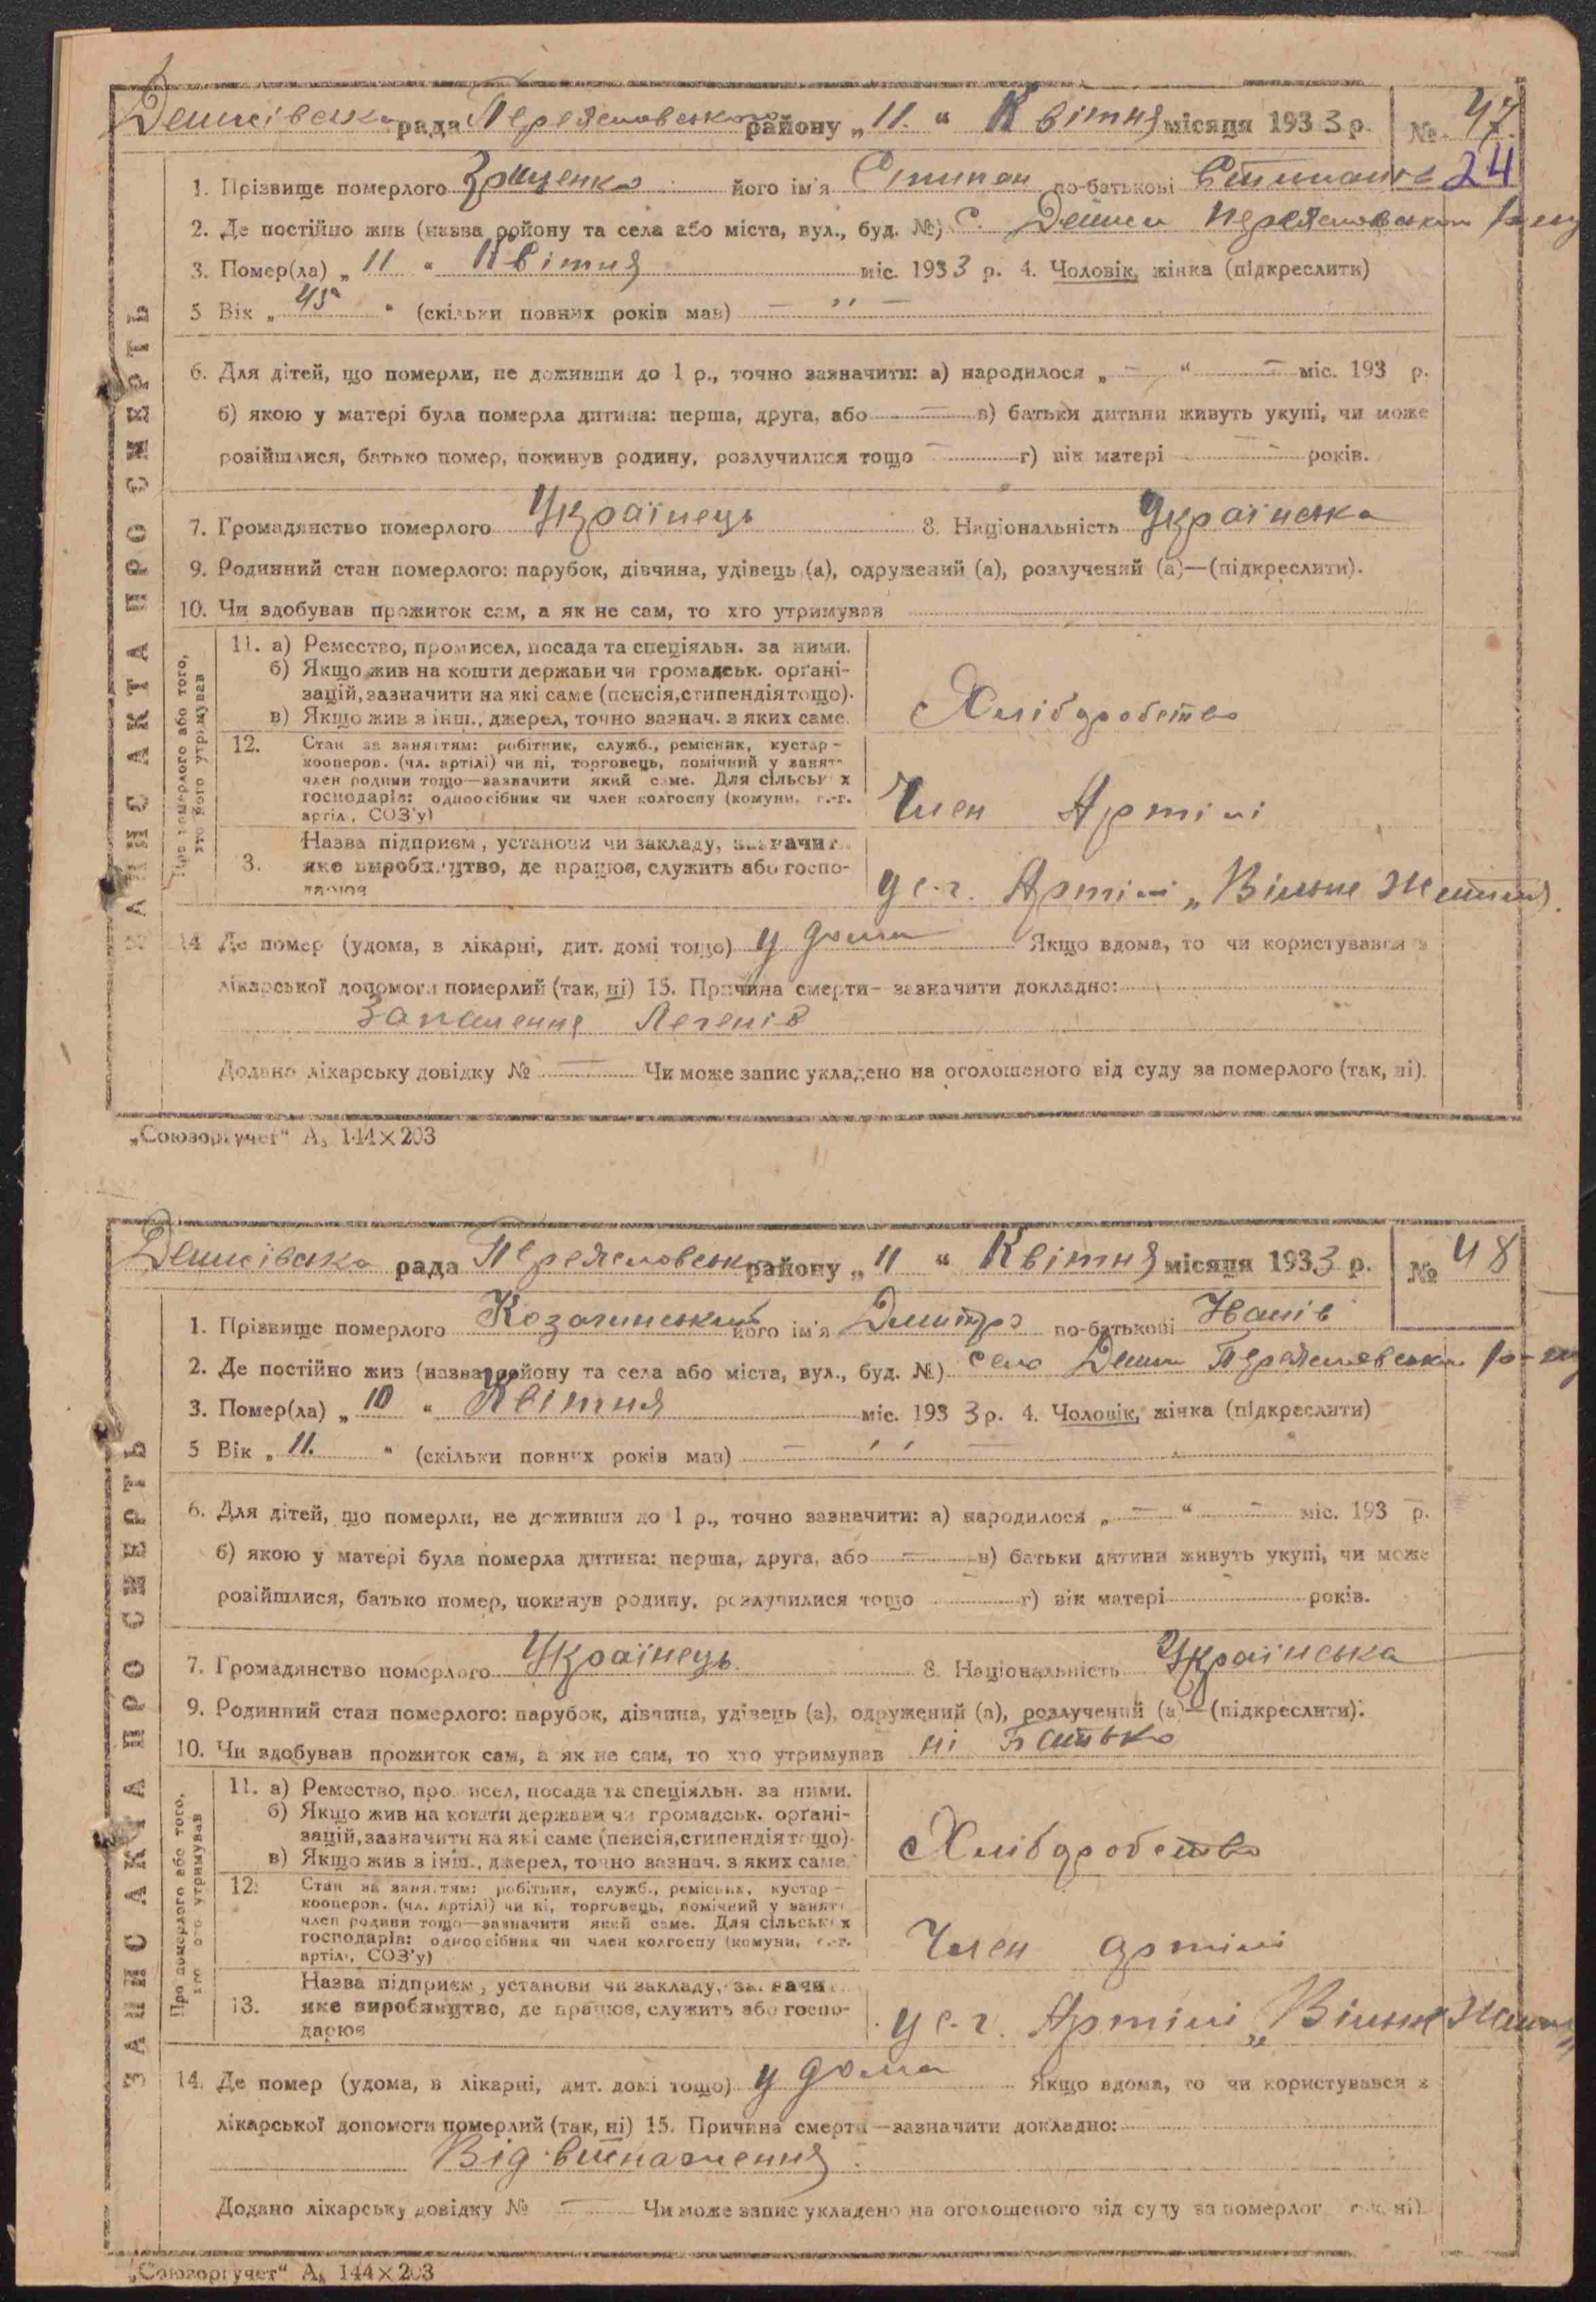 Денисівська рада Переяславського району „11.“ Квітня місяця 1933 р. № 47.
24
1. Прізвище померлого його ім'я Степан по-батькові
2. Де постійно жив (назва району та села або міста, вул., буд. №) с. Дениси Переяславськ
3. Помер(ла) „11“ Квітня міс. 1933 р. 4. Чоловік, жінка (підкреслити)
5 Вік „45“ (скільки повних років мав) — ״ —
6. Для дітей, що померли, не доживши до 1 р., точно зазначити: а) народилося „—“ — міс. 193 р.
б) якою у матері була померла дитина: перша, друга, або — в) батьки дитини живуть укупі, чи може
розійшлися, батько помер, покинув родину, розлучилися тощо — г) вік матері — років.
7. Громадянство померлого Українець 8. Національність Українська
9. Родинний стан померлого: парубок, дівчина, удівець (а), одружений (а), розлучений (а)—(підкреслити).
10. Чи здобував прожиток сам, а як не сам, то хто утримував
ЗАПИС АКТА ПРО СМЕРТЬ
Про померлого або того, хто його утримував
11. а) Ремество, промисел, посада та спеціяльн. за ними.
б) Якщо жив на кошти держави чи громадськ. орґані-
зацій, зазначити на які саме (пенсія, стипендія тощо).
в) Якщо жив з інш., джерел, точно зазнач. з яких саме.
Хліборобство
12. Стан за заняттям: робітник, служб., ремісник, кустар-
кооперов. (чл. артілі) чи ні, торговець, помічний у занят.
член родини тощо—зазначити який саме. Для сільських
господарів: одноосібник чи член колгоспу (комуни, с.-г.
артіл., СОЗ'у)
Член Артілі
3. Назва підприєм, установи чи закладу, зазначит
яке виробництво, де працює, служить або госпо-
дарює
у с.-г. Артілі „Вільне Життя".
14 Де помер (удома, в лікарні, дит. домі тощо) у дома Якщо вдома, то чи користувався з
лікарської допомоги померлий (так, ні) 15. Причина смерти—зазначити докладно:
Запалення Легенів
Додано лікарську довідку № — Чи може запис укладено на оголошеного від суду за померлого (так, ні).
„Союзоргучет“ А₅ 144×203
Денисівська рада Переяславськ району „11“ Квітня місяця 1933 р. № 48
1. Прізвище померлого Козачинський його ім'я Дмитро по-батькові Іванів
2. Де постійно жив (назва району та села або міста, вул., буд. №) село Дениси Переяславськ р-ну
3. Помер(ла) „10“ Квітня міс. 1933 р. 4. Чоловік, жінка (підкреслити)
5 Вік „11.“ (скільки повних років мав) — ״ —
6. Для дітей, що померли, не доживши до 1 р., точно зазначити: а) народилося „—“ — міс. 193 р.
б) якою у матері була померла дитина: перша, друга, або — в) батьки дитини живуть укупі, чи може
розійшлися, батько помер, покинув родину, розлучилися тощо г) вік матері років.
7. Громадянство померлого Українець 8. Національність Українська
9. Родинний стан померлого: парубок, дівчина, удівець (а), одружений (а), розлучений (а)—(підкреслити).
10. Чи здобував прожиток сам, а як не сам, то хто утримував ні Батько
ЗАПИС АКТА ПРО СМЕРТЬ
Про померлого або того, хто його утримував
11. а) Ремество, промисел, посада та спеціяльн. за ними.
б) Якщо жив на кошти держави чи громадськ. орґані-
зацій, зазначити на які саме (пенсія, стипендія тощо).
в) Якщо жив з інш., джерел, точно зазнач. з яких саме.
Хліборобство
12. Стан за заняттям: робітник, служб., ремісник, кустар-
кооперов. (чл. артілі) чи ні, торговець, помічний у занят.
член родини тощо—зазначити який саме. Для сільських
господарів: одноосібник чи член колгоспу (комуни, с.-г.
артіл., СОЗ'у)
Член артілі
13. Назва підприєм, установи чи закладу, зазначи
яке виробництво, де працює, служить або госпо-
дарює
у с.-г. Артілі „Вільне
14. Де помер (удома, в лікарні, дит. домі тощо) у дома Якщо вдома, то чи користувався з
лікарської допомоги померлий (так, ні) 15. Причина смерти—зазначити докладно:
Від виснаження.
Додано лікарську довідку № — Чи може запис укладено на оголошеного від суду за померлог (так, ні).
„Союзоргучет“ А₅ 144×203